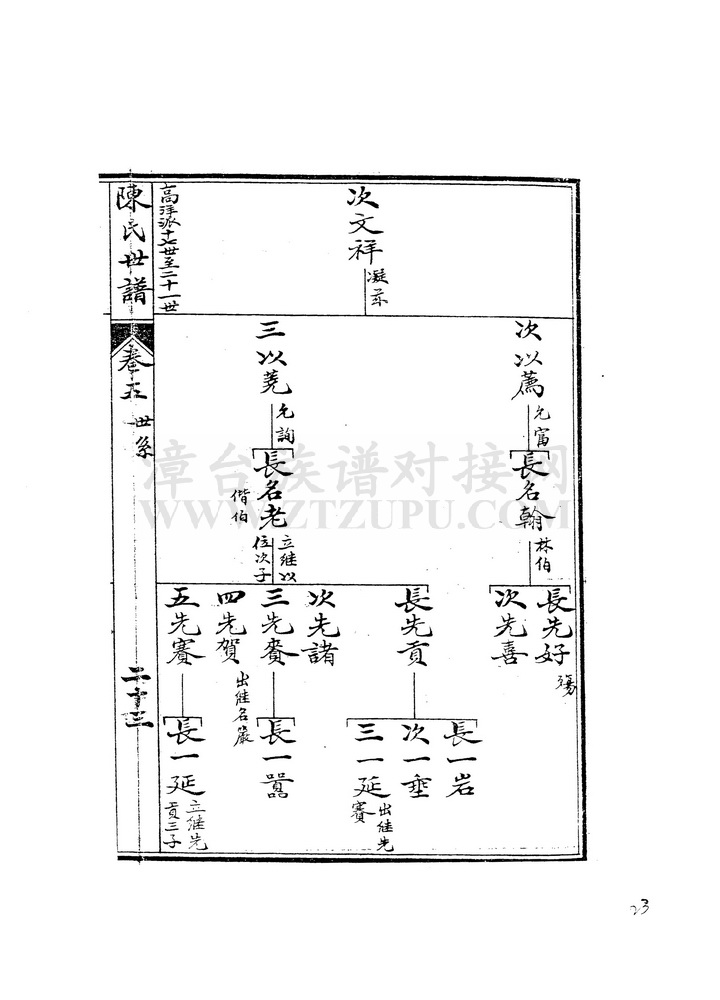 次文祥
凝䒭
次以薦
允富
長名翰
林伯
長先好
殤
次先喜
三以蕘
允詢
長名老
偕伯
立继以
位次子
長先貢
長一岩
次一垂
三一延
出继先
賽
次先諸
三先賚
長一嚣
四先賀
出继名嚴
五先賽
長一延
立继先
貢三子
高洋派十七世至二十一世
陳氏世譜
卷五 世系
二十三
漳台族谱对接网
WWW.ZTZUPU.COM
23